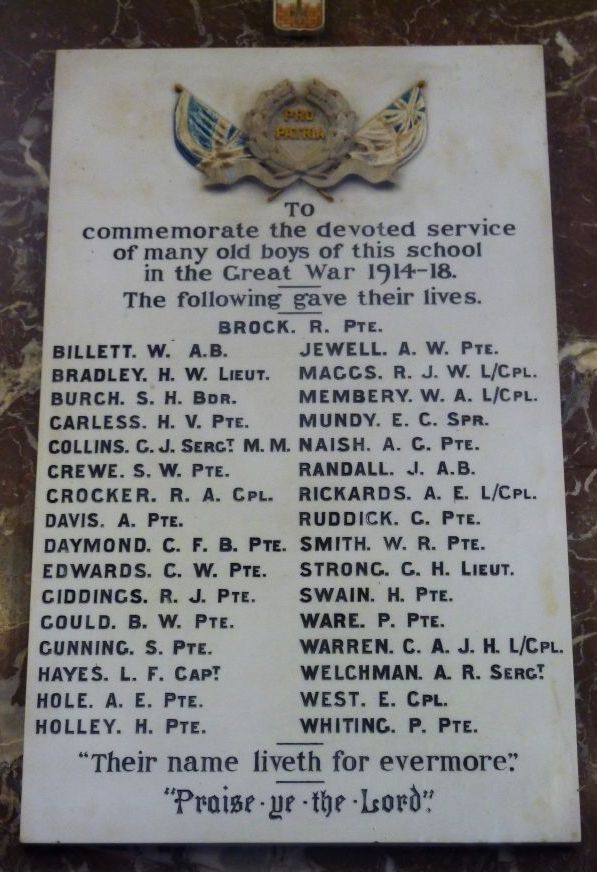 PRO
PATRIA
To
commemorate the devoted service
of many old boys of this school
in the Great War 1914-18.
The following gave their lives.
BROCK. R. PTE.
BILLETT. W. A.B.
BRADLEY. H. W. LIEUT.
BURCH. S. H. BDR.
CARLESS. H. V. PTE.
COLLINS. G. J. SERGT M. M.
CREWE. S. W. PTE.
CROCKER. R. A. CPL.
DAVIS. A. PTE.
DAYMOND. C. F. B. PTE.
EDWARDS. C. W. PTE.
GIDDINGS. R. J. PTE.
GOULD. B. W. PTE.
GUNNING. S. PTE.
HAYES. L. F. CAPT
HOLE. A. E. PTE.
HOLLEY. H. PTE.
JEWELL. A. W. PTE.
MAGGS. R. J. W. L/CPL.
MEMBERY. W. A. L/CPL.
MUNDY. E. C. SPR.
NAISH. A. G. PTE.
RANDALL. J. A.B.
RICKARDS. A. E. L/CPL.
RUDDICK. G. PTE.
SMITH. W. R. PTE.
STRONG. G. H. LIEUT.
SWAIN. H. PTE.
WARE. P. PTE.
WARREN. C. A. J. H. L/CPL.
WELCHMAN. A. R. SERGT
WEST. E. CPL.
WHITING. P. PTE.
"Their name liveth for evermore."
"Praise · ye · the · Lord".